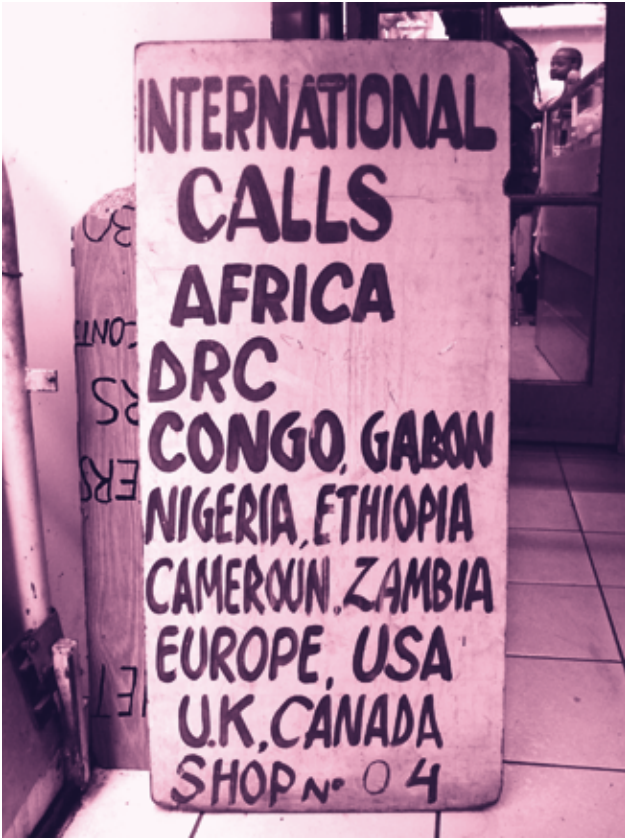 INTERNATIONAL
CALLS
AFRICA
DRC
CONGO, GABON
NIGERIA, ETHIOPIA
CAMEROUN, ZAMBIA
EUROPE, USA
U.K, CANADA
SHOP No 04